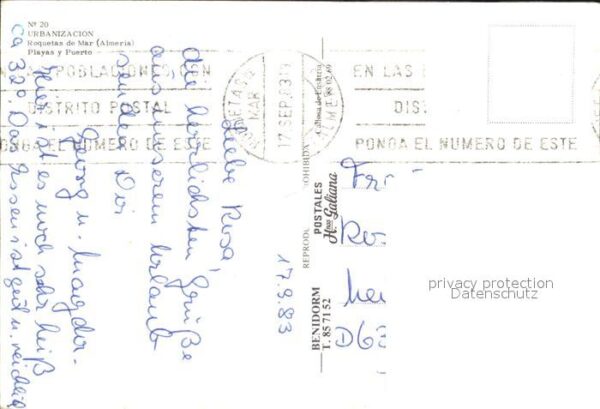 Nº 20
URBANIZACION
Roquetas de Mar (Almeria)
Playas y Puerto
Liebe Rosa,
die herzlichsten Grüße
aus unserem Urlaub
senden Dir
Georg u. Magda.
Hier ist es noch sehr heiß
ca 32º. Das Essen ist gut u. reichlich
17.9.83
POBLACIONES CON
DISTRITO POSTAL
PONGA EL NUMERO DE ESTE
ROQUETAS
MAR
17 SEP 83
EN LAS
DIS
PONGA EL NUMERO DE ESTE
PROHIBIDA
REPROD
POSTALES
Hnos Galiana
BENIDORM
T. 85 71 52
Fr
Ro
D62
privacy protection
Datenschutz